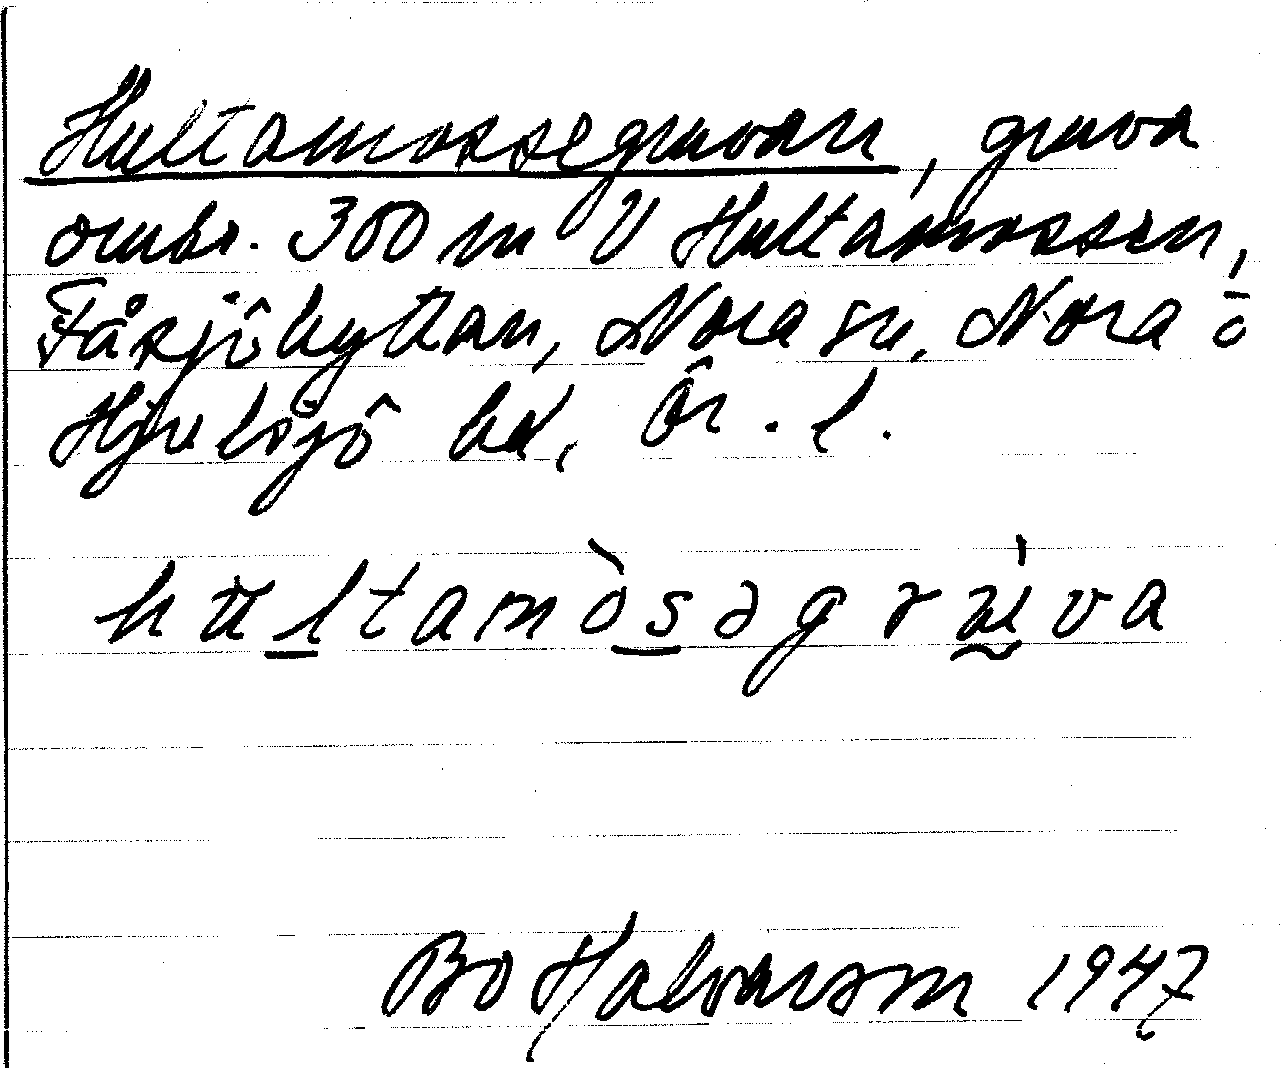 Hultamossegruvan, gruva
omkr. 300 m V Hultamossen,
Fåsjöhyttan, Nora sn, Nora o
Hjulsjö bd, Ör. l.
hultamòsəgrùva
Bo Halvarson 1947